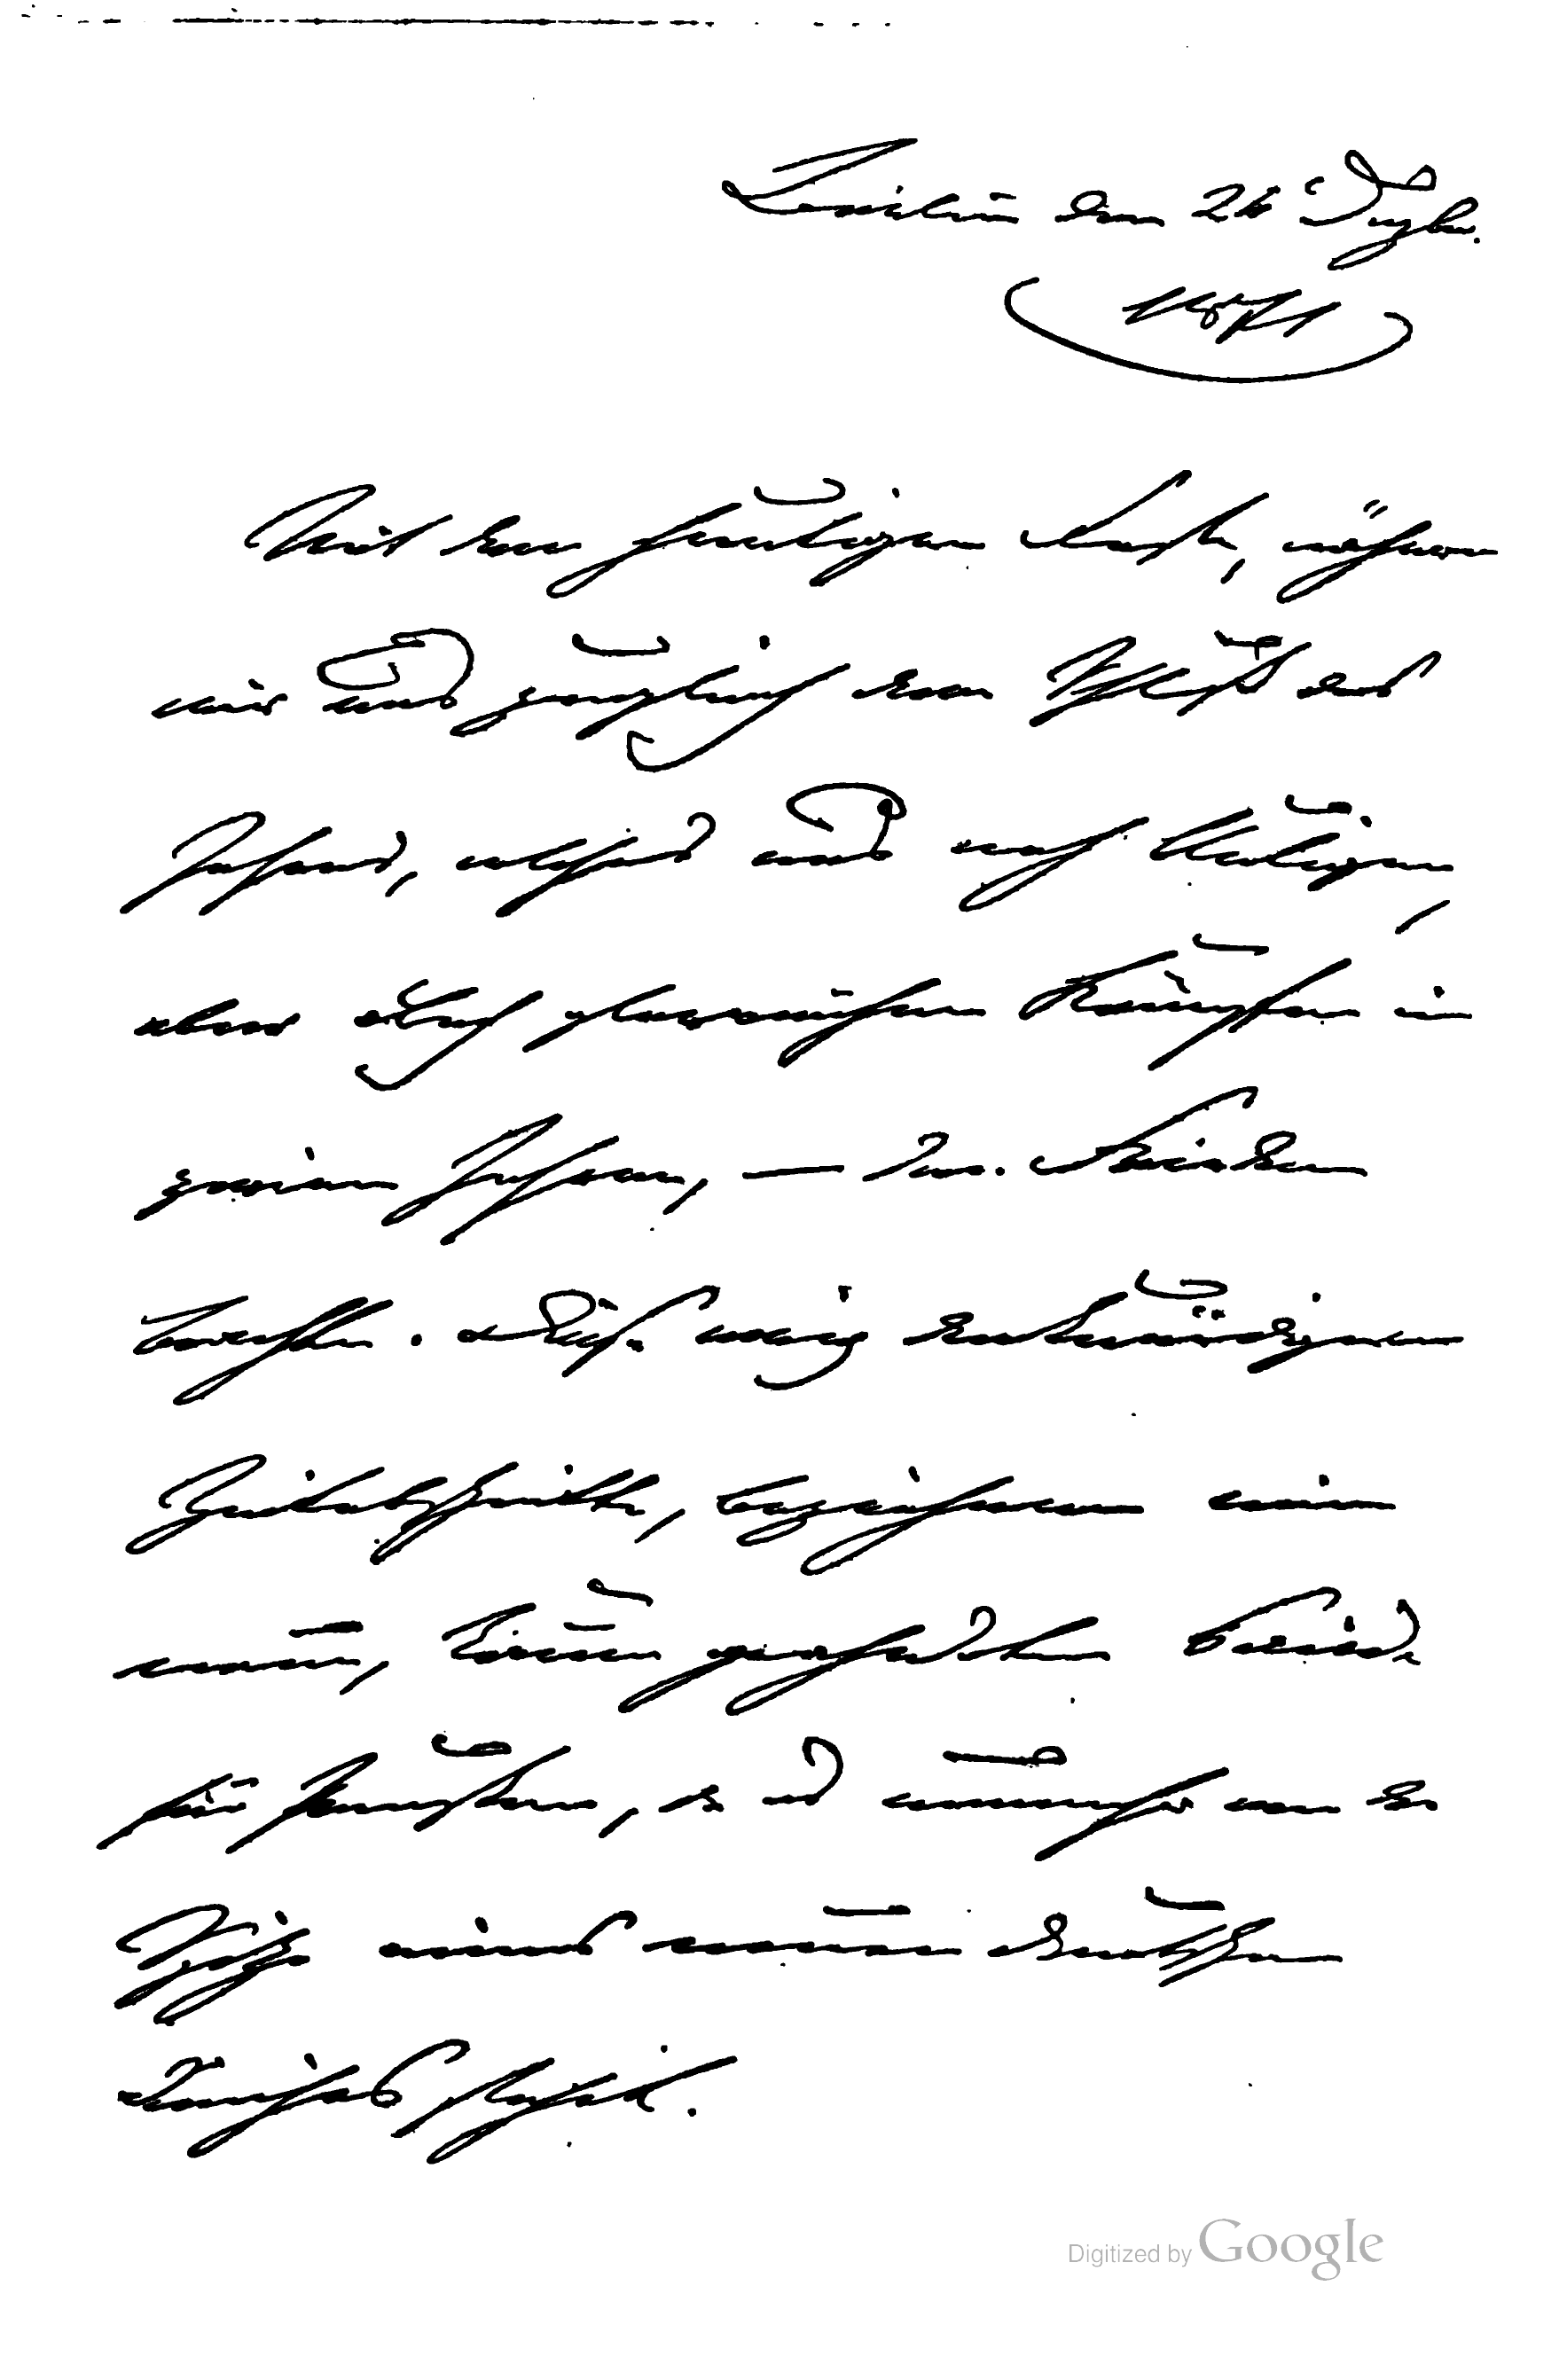 Berlin den 26 Dezbr.
1871
Mit dem heutigen Tage, nähern
wir uns dem Schluß des
Jahres, welches uns nach blutigen,
aber stets glorreichen Kämpfen in
zweien Jahren, — den Frieden
brachte. Diese ewig denkwürdigen
Zeitabschnitte, bezeichnen eine
neue, kaum geahndete
für Preußen, nunmehr an der
Spitze eines neuen deutschen
steht.
Digitized by Google